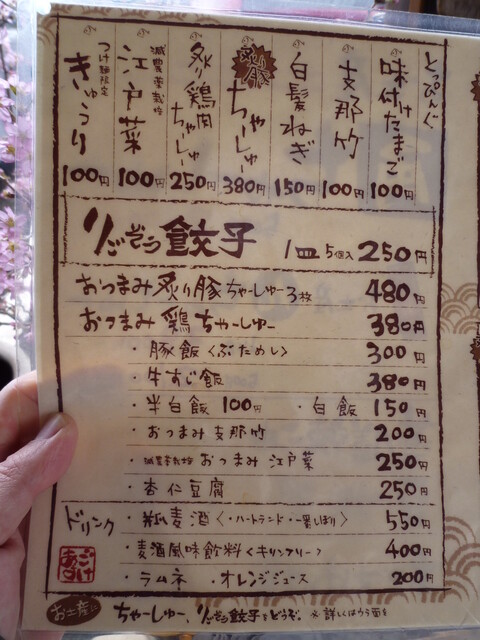 とっぴんぐ
味付けたまご 100円
支那竹 100円
白髪ねぎ 150円
炙り豚 ちゃーしゅー 380円
炙り鶏肉ちゃーしゅー 250円
減農薬栽培 江戸菜 100円
つけ麺限定 きゅうり 100円
りごぞう餃子 1皿 5個入 250円
おつまみ炙り豚ちゃーしゅー3枚 480円
おつまみ鶏ちゃーしゅー 380円
・豚飯〈ぶためし〉 300円
・牛すじ飯 380円
・半白飯 100円 ・白飯 150円
・おつまみ支那竹 200円
・減農薬栽培 おつまみ江戸菜 250円
・杏仁豆腐 250円
ドリンク ・瓶麦酒〈・ハートランド ・一番しぼり〉 550円
・麦酒風味飲料〈キリンフリー〉 400円
・ラムネ ・オレンジジュース 200円
お土産に ちゃーしゅー、りごぞう餃子をどうぞ。※詳しくはウラ面を